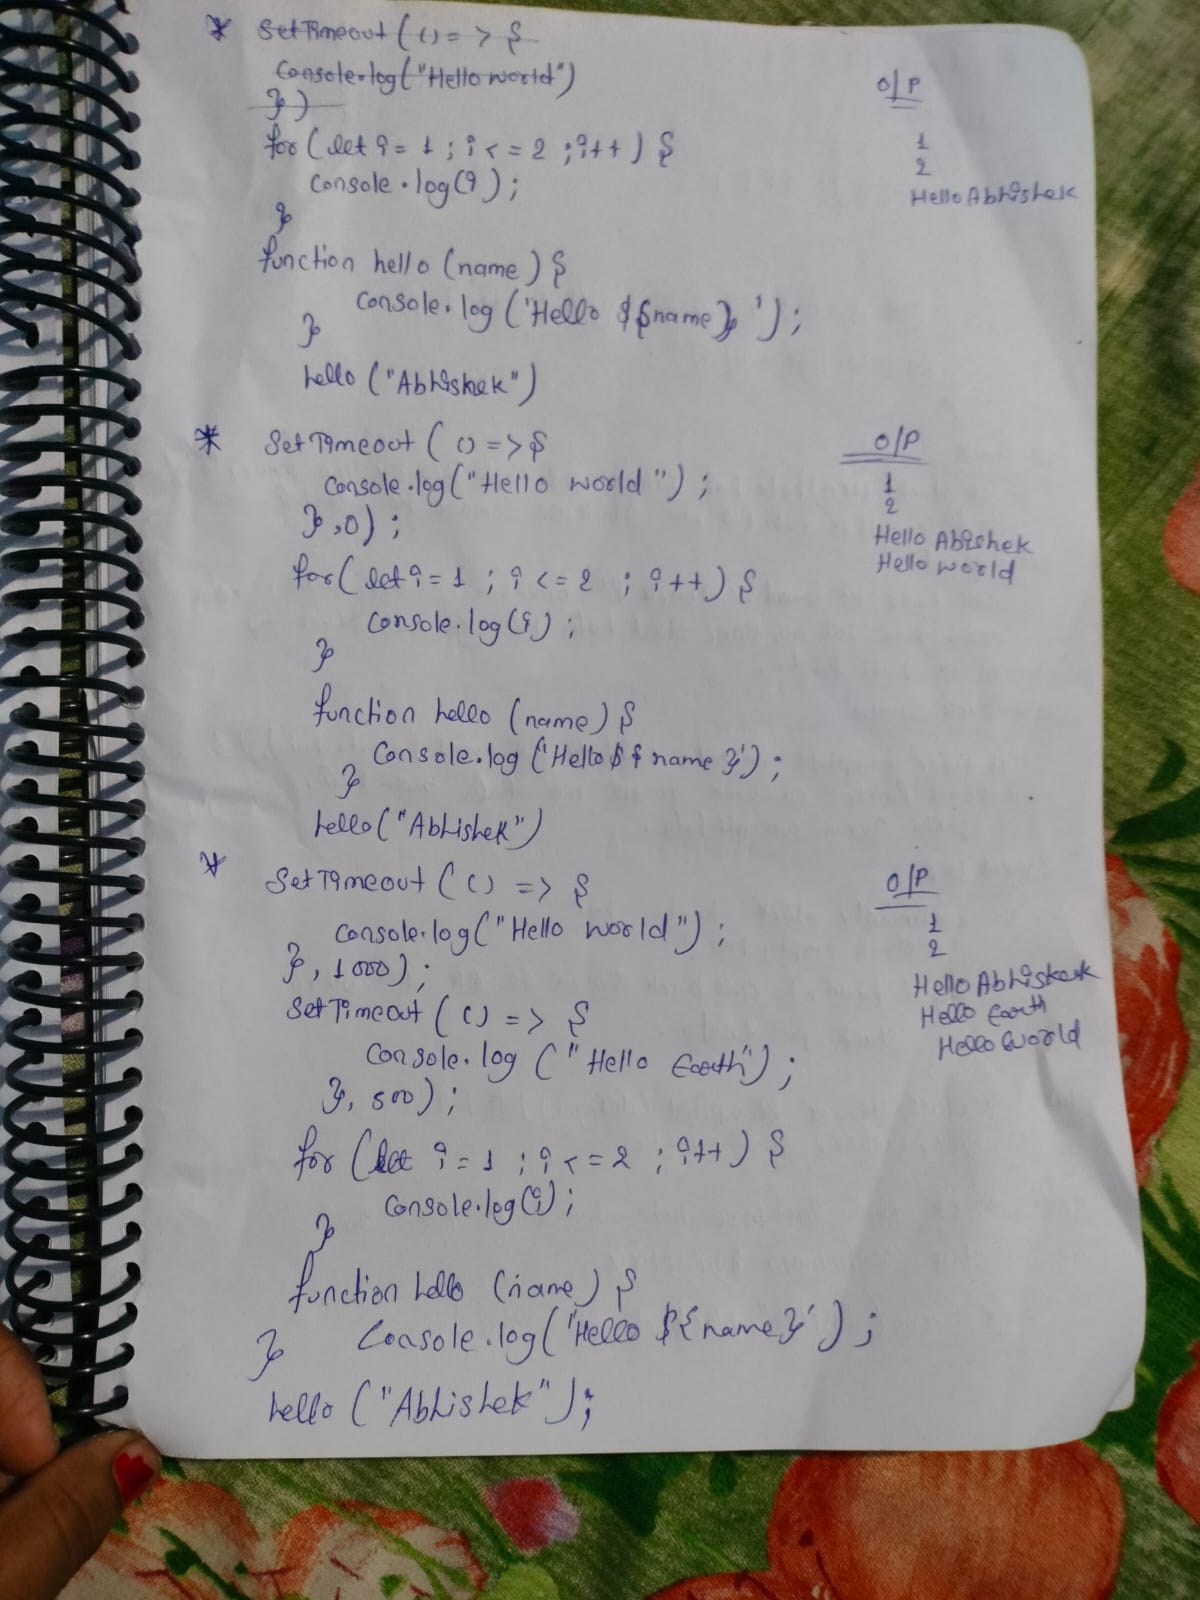 * SetTimeout (() => {
Console.log("Hello world")
})
for (let i = 1 ; i <= 2 ; i++) {
Console.log(i);
}
function hello (name) {
Console.log ('Hello ${name}');
}
hello ("Abhishek")
O/P
1
2
Hello Abhishek
* SetTimeout ( () => {
Console.log("Hello world");
},0);
for( let i = 1 ; i <= 2 ; i++) {
Console.log(i);
}
function hello (name) {
Console.log ('Hello ${name}');
}
hello("Abhishek")
O/P
1
2
Hello Abishek
Hello world
* SetTimeout ( () => {
Console.log("Hello world");
}, 1000);
SetTimeout ( () => {
Console.log ("Hello Earth");
}, 500);
for (let i = 1 ; i <= 2 ; i++) {
Console.log(i);
}
function hello (name) {
Console.log('Hello ${name}');
}
hello ("Abhishek");
O/P
1
2
Hello Abhishek
Hello Earth
Hello World